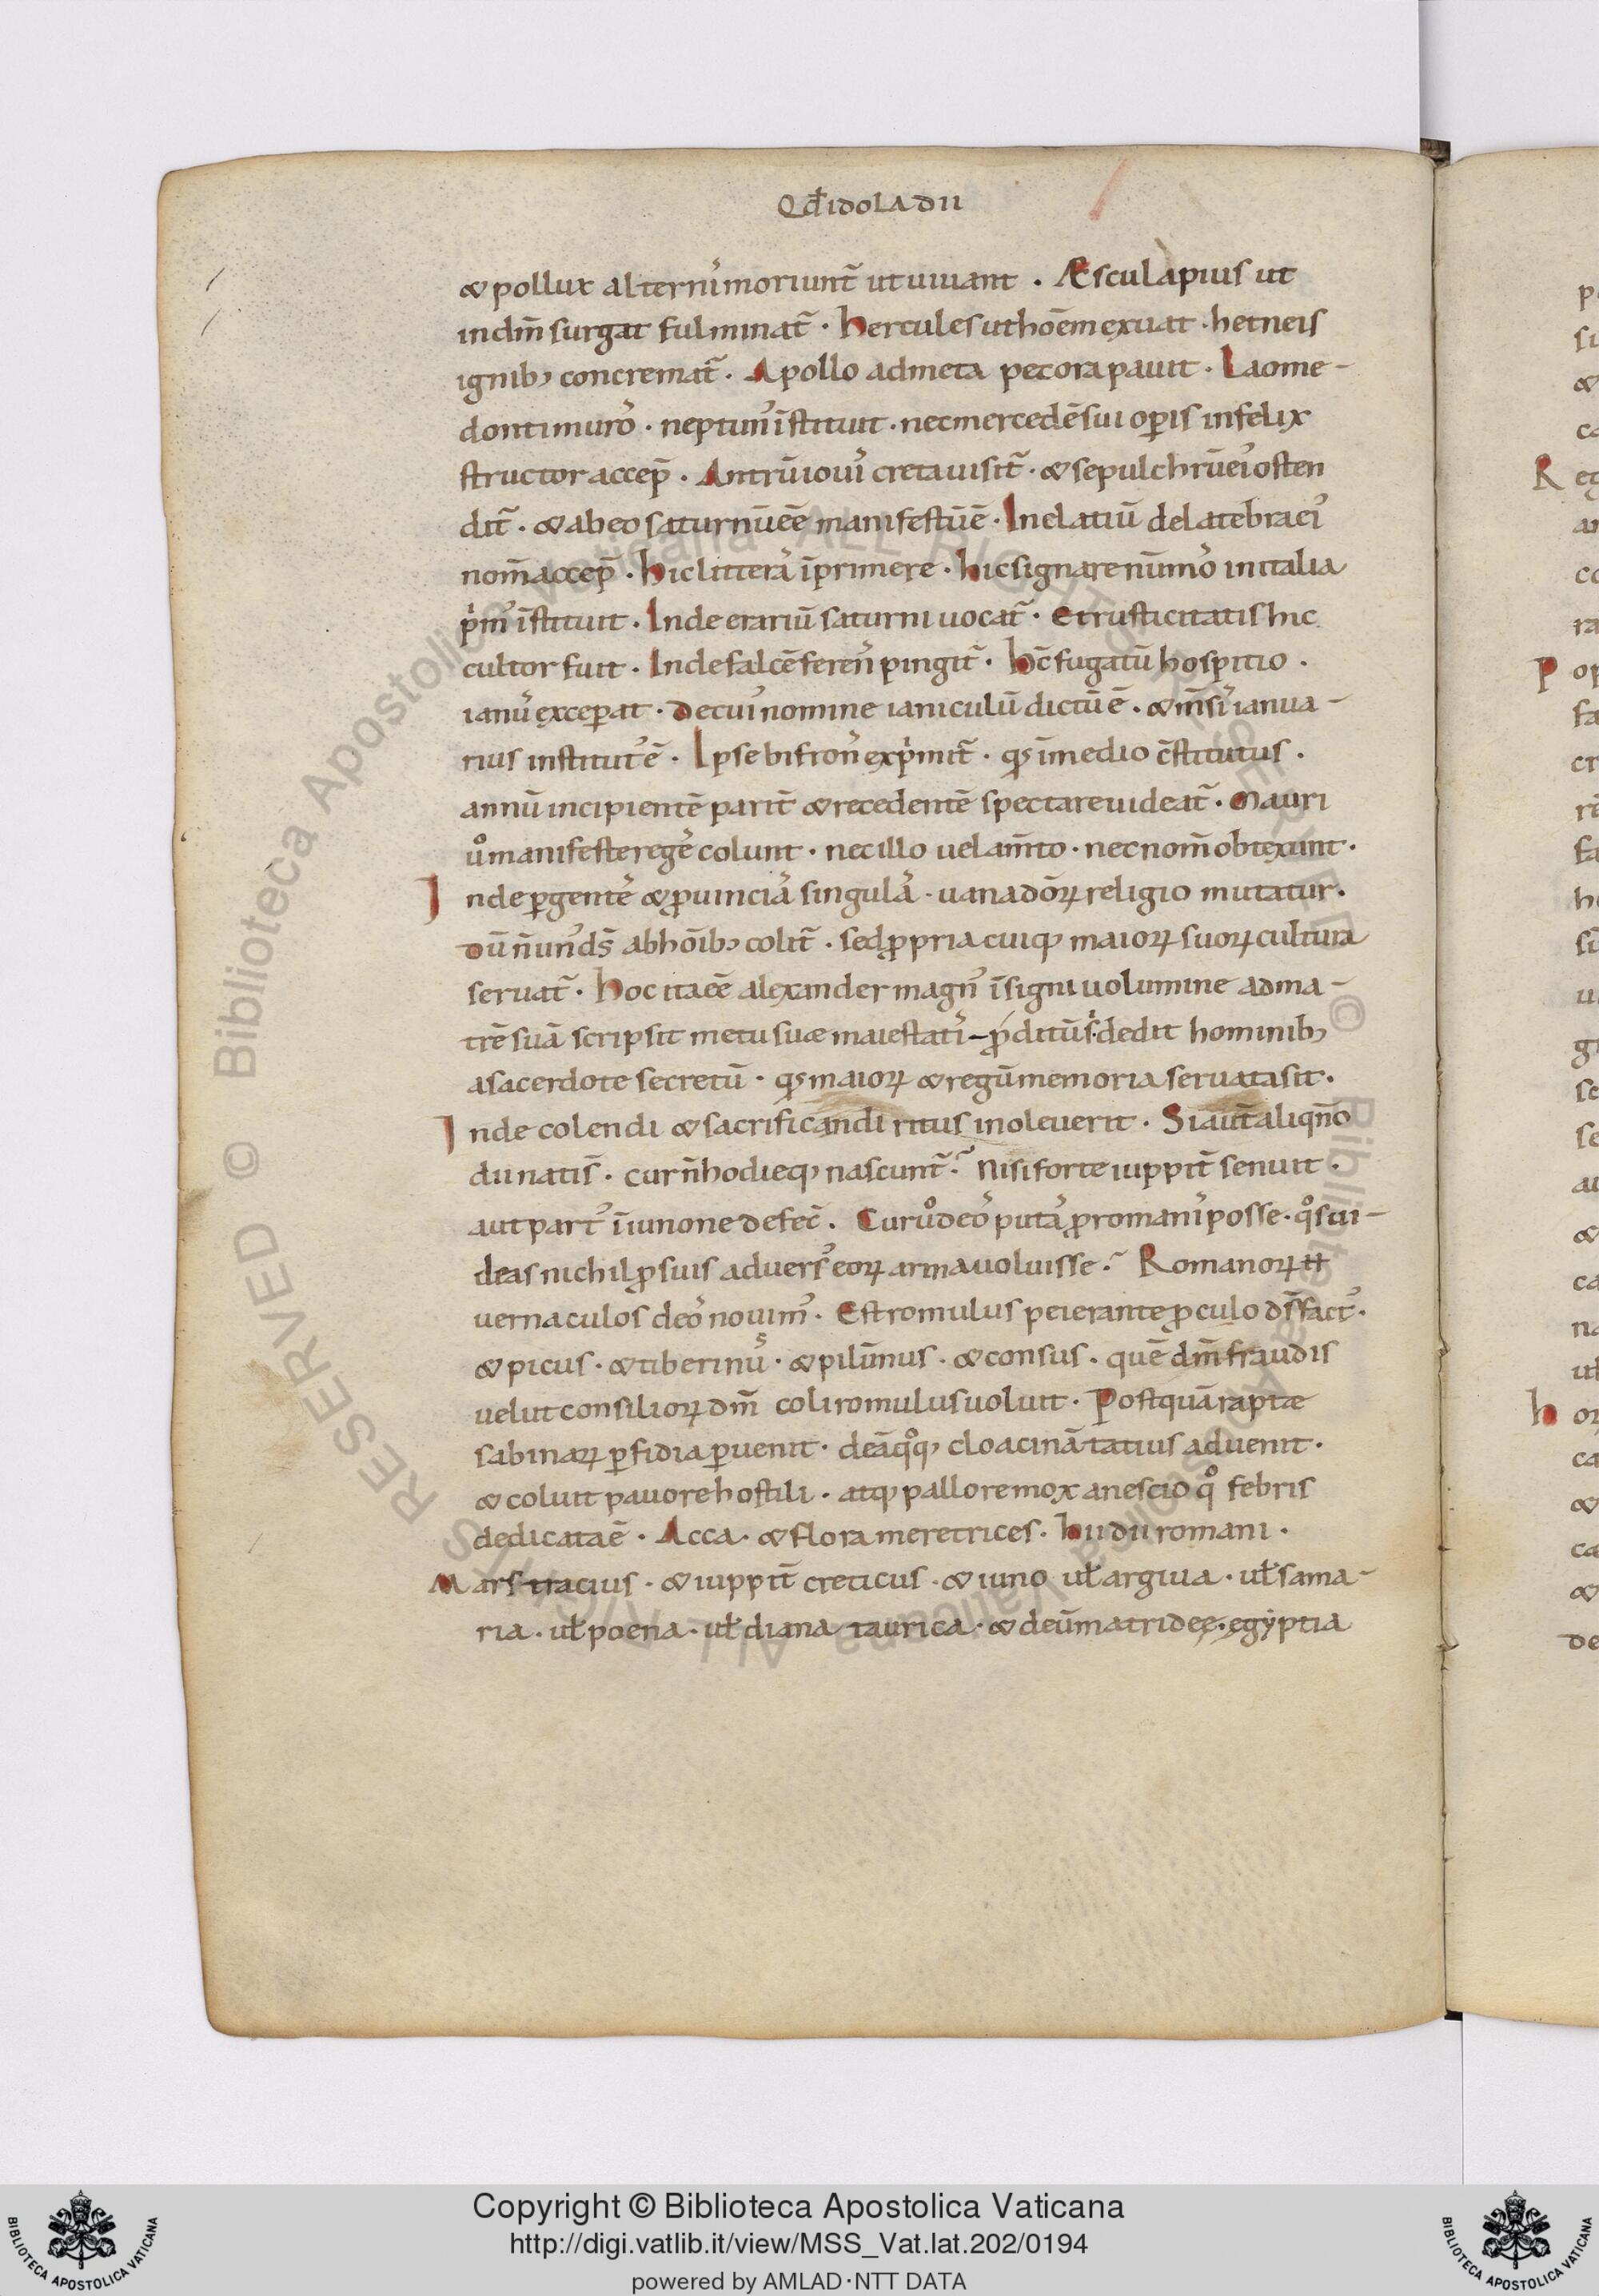 Qđ idola dii
& pollux alterni᷒ moriunt̄ ut uiuant . Æsculapius ut
in dm̄ surgat fulminat̄ . hercules ut hoēm exuat . hetneis
ignib; concremat̄ . Apollo admeta pecora pauit . Laome-
donti muro᷒ . neptun᷒ īstituit . nec mercedē sui op̄is infelix
structor accep̄ . Antrū ioui᷒ creta uisit̄ . & sepulchrū ei᷒ osten
dit̄ . & ab eo saturnū eē manifestū ē . In elatiū de latebra ei᷒
nom̄ accep̄ . hic litterā᷒ īprimere . hic signare nūmo᷒ in italia
p̓m᷒ īstituit . Inde erariū saturni uocat̄ . Et rusticitatis hic
cultor fuit . Inde falcē feren᷒ pingit̄ . hc̄ fugatū hospitio .
ianu᷒ excep̄at . De cui᷒ nomine ianiculū dictū ē . & m̄si᷒ ianua-
rius institut᷒ ē . Ipse bifron᷒ exp̓mit̄ . qͥ īmedio c̄stitutus .
annū incipientē parit̄ & recedentē spectare uideat̄ . Mauri
ů manifeste rege᷒ colunt . nec illo uelam̄to . nec nom̄ obtexunt .
Inde p̄gente᷒ & ꝓuinciā᷒ singulā᷒ . uana dōꝝ religio mutatur .
Dū n̄ un᷒ ds̄ ab hōib; colit̄ . sed ꝓpria cuiq; maioꝝ suoꝝ cultura
seruat̄ . Hoc ita eē alexander magn᷒ īsigni uolumine ad ma-
trē suā scripsit metu suæ maiestati᷒ – ꝓditū s̓ . dedit hominib;
a sacerdote secretū . qͥ maioꝝ & regū memoria seruata sit .
Inde colendi & sacrificandi ritus inoleuerit . Si aut̄ aliqn̄o
dii nati s̄ . cur n̄ hodieq; nascunt̄ .᷉ Nisi forte iuppit̄ senuit .
aut part᷒ ī iunone defec̄ . Cur ů deo᷒ putā᷒ ꝓ romani᷒ posse . q̊s ui-
deas nichil ꝓ suis aduers᷒ eoꝝ arma uoluisse .᷉ Romanoꝝ tt
uernaculos deo᷒ nouim᷒ . Est romulus peierante ꝓculo ds̄ fact᷒ .
& picus . & tiberinu᷒ . & pilūnus . & consus . quē dm̄ fraudis
uelut consilioꝝ dm̄ coli romulus uoluit . Postquā raptæ
sabinaꝝ p̄fidia p̄uenit . deā qͦq; cloacinā tatius aduenit .
& coluit pauore hostili . atq; pallore mox a nescio q̊ febris
dedicata ē . Acca . & flora meretrices . hii dii romani .
Mars tracius . & iuppit̄ creticus . & iuno ut̄ argiua . ut̄ sama-
ria . ut̄ poena . ut̄ diana taurica . & deūm atridee . egẏptia
Copyright © Biblioteca Apostolica Vaticana
http://digi.vatlib.it/view/MSS_Vat.lat.202/0194
powered by AMLAD·NTT DATA